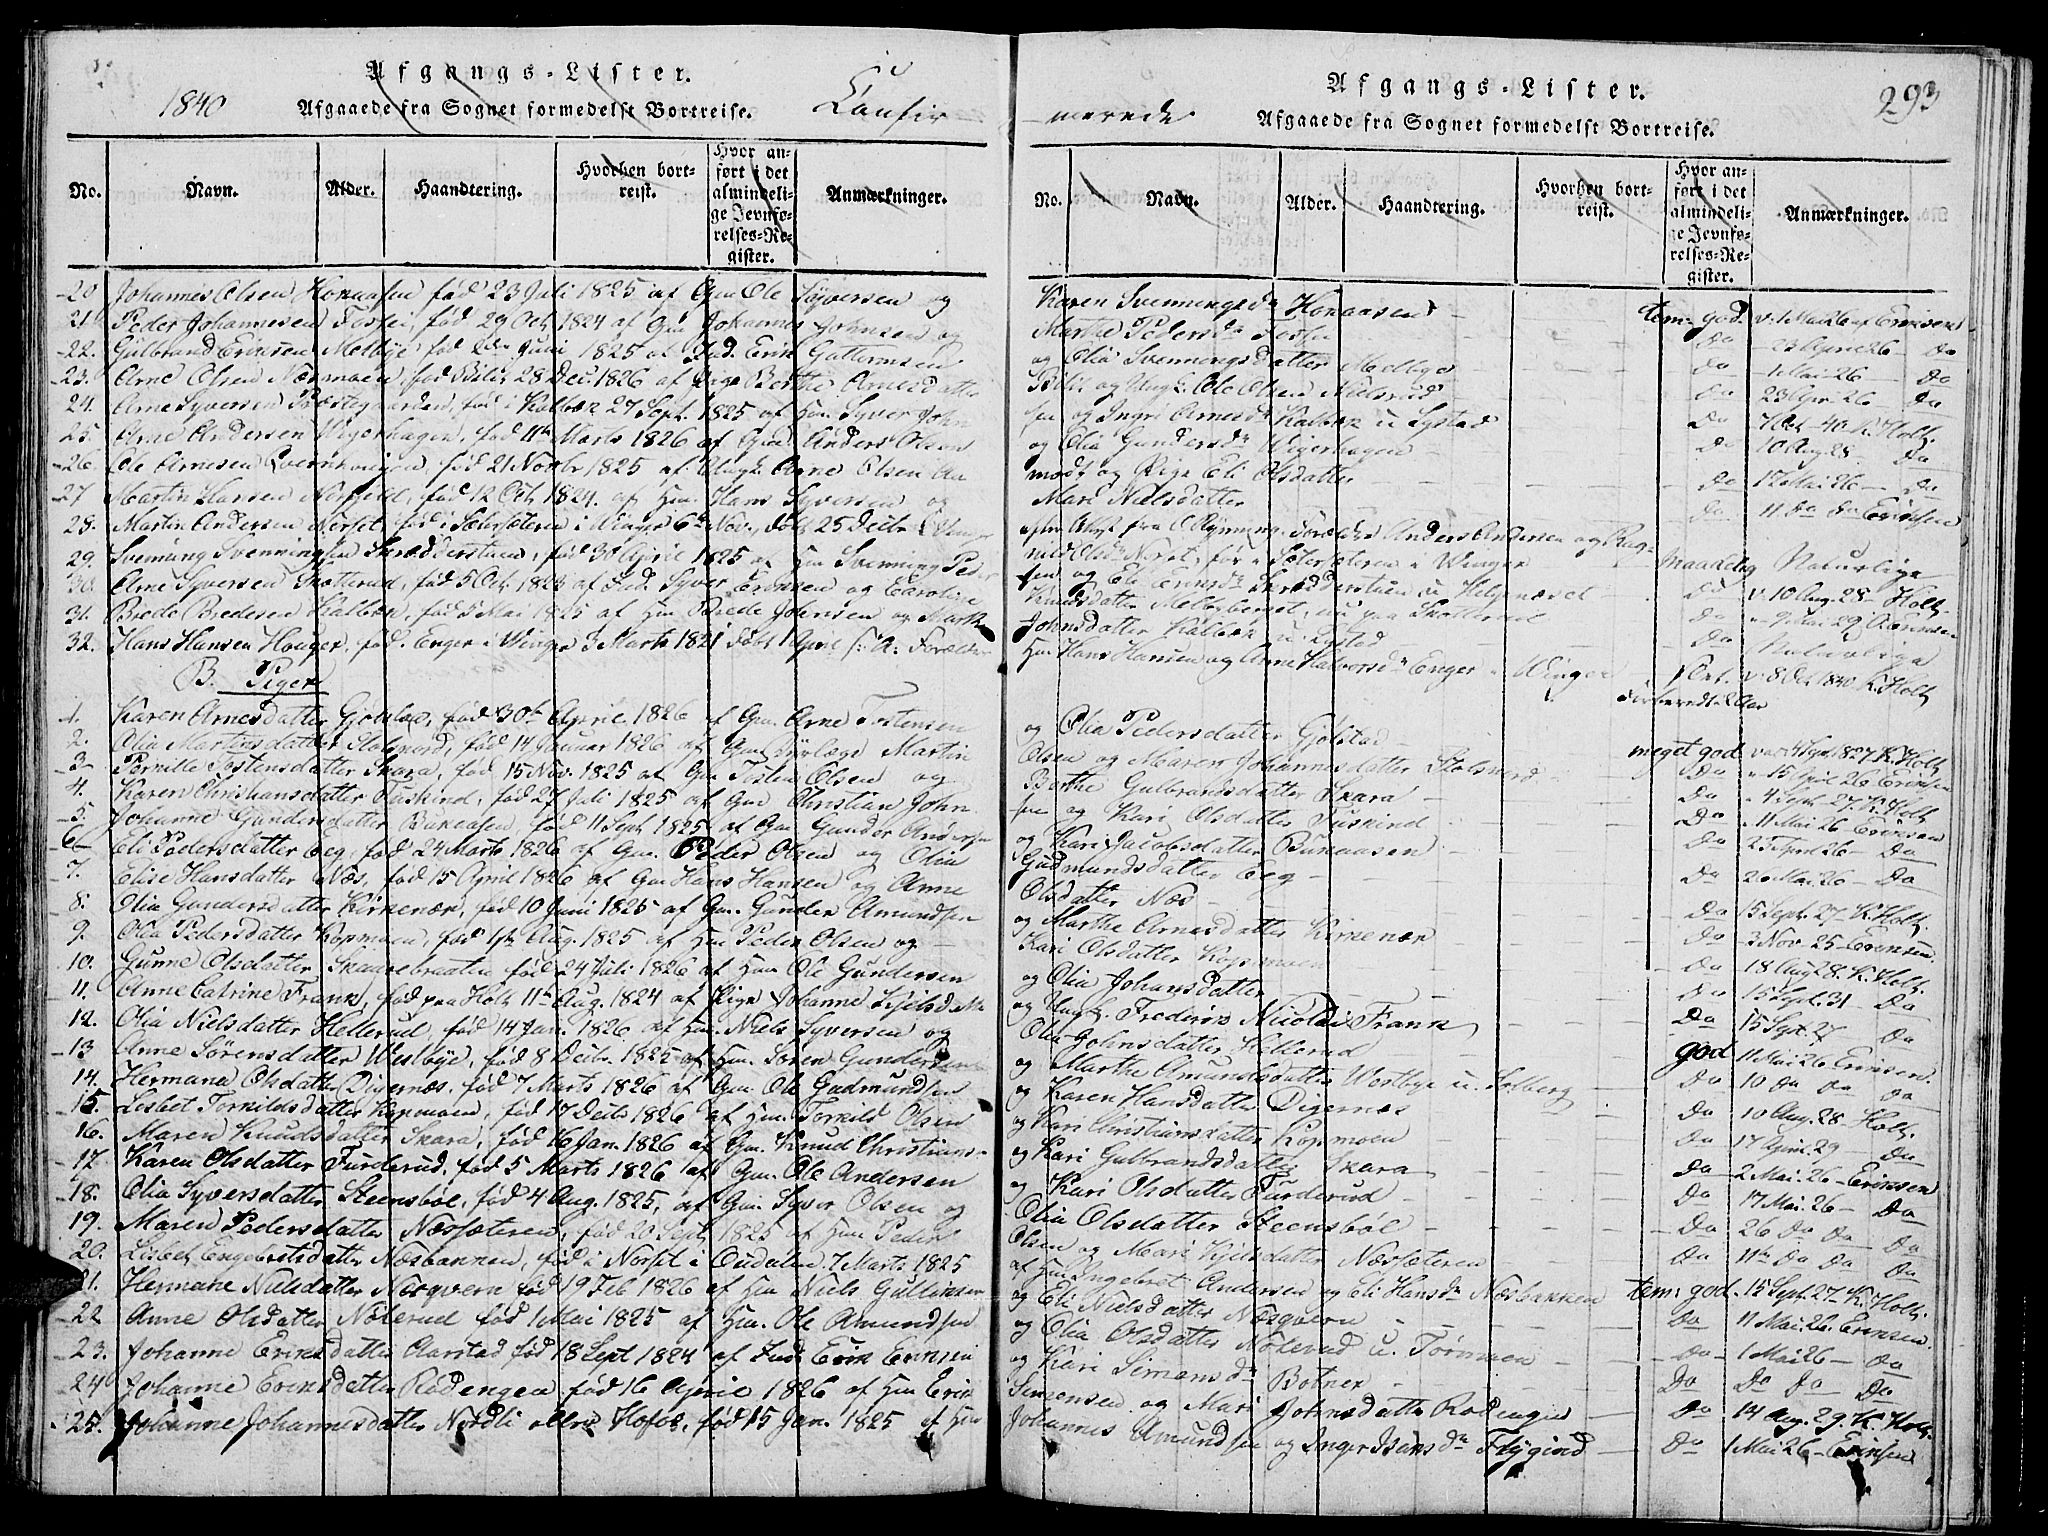 Afgangs-Lister.
1840 Afgaaede fra Sognet formedelst Bortreise. Confir
No. Navn. Alder. Haandtering. Hvorhen bortreist. Hvor anført i det almindelige Jevnførelses-Register. Anmærkninger.
20 Johannes Olsen Honaasen fød 23 Juli 1825 af Gm Ole Syversen og
21 Peder Johannesen Fosse, fød 29 Oct 1824 af Gm Johannes Johnsen og
22. Gulbrand Eriksen Melbye fød Juni 1825 af Ind. Erik Guttormsen
23. Arne Olsen Næsmoen, fød 28 Dec. 1826 af Pige Berthe Arnesdatter
24. Arne Syversen Præstegaarden, fød i Kalbæk 27 Sept. 1825 af Hm. Syver John
25. Arne Andersen Wigerhagen, fød 11te Marts 1826 af Gm Anders Olsen
26. Ole Arnesen fød 21 Novbr 1825 af Ungk. Arne Olsen Aa
27 Martin Hansen fød 12 Oct 1824. af Hm. Hans Syversen og
28. Martin Andersen Norset, fød i Sætersæteren i Winger 6te Nov. døbt 25 Decbr
29. Svenning Svenningsen Skrædderstuen, fød 30 April 1825 af Hm Svenning Peder
30. Arne Syversen Skotterud, fød 5 Oct 1823 af Ind. Syver Eriksen og Caroline
31. Brede Bredesen Kalbæk, fød Mai 1825 af Hm Brede Johnsen og Marthe
32. Hans Hansen Houger, fød. Enger i Winger 3 Marts 1821 døbt 1 April /: A: Forældre
B. Piger
1. Karen Arnesdatter Gjölstad, fød 30te April 1826 af Gm. Arne Tostensen
2. Olia Martinsdatter Stolsnord, fød 14 Januar 1826 af Gm Martin
3. Pernille Tostensdatter Skara, fød 15 Nov. 1825 af Gm Tosten Olsen og
4. Karen Christiansdatter Tuskind, fød 27 Juli 1825 af Gm Christian John
5. Johanne Gundersdatter Bunaasen fød 11 Sept 1825 af Gm Gunder Andersen
6. Eli Pedersdatter Eeg, fød 24 Marts 1826 af Gm. Peder Olsen og Olia
7. Elise Hansdatter Næs, fød 15 April 1826 af Gm Hans Hansen og Anne
8. Olia Gundersdatter Kirkenær, fød 10 Juni 1825 af Gm. Gunder Amundsen
9. Olia Pedersdatter Kopmoen, fød 1ste Aug. 1825 af Hm Peder Olsen og
10. Gunne Olsdatter Skaarebraaten fød 24 Juli 1826 af Hm Ole Gundersen
11. Anne Catrine Frank, fød paa Holt 11te Aug. 1824 af Pige Johanne Kjelsdatter
12. Olia Nielsdatter Hellerud, fød 14 Jan. 1826 af Hm. Niels Syversen og
13 Anne Sörensdatter Westbye, fød 8 Decbr. 1825 af Hm. Sören Gundersen
14. Hermana Olsdatter Digernæs. fød 7 Marts 1826 af Gm. Ole Gudmundsen
15. Lisbet Torkildsdatter Kopmoen, fød 17 Decbr 1826 af Hm. Torkild Olsen
16. Maren Knudsdatter Skara, fød 16 Jan. 1826 af Gm. Knud Christians-
17 Karen Olsdatter Furderud, fød 5 Marts 1826 af Gm. Ole Andersen
18. Olia Syversdatter Steensböl, fød 4 Aug. 1825, af Gm. Syver Olsen og
19. Maren Pedersdatter Næssæteren, fød 20 Sept 1825 af Hm Peder
20. Lisbet Engebretsdatter Næsbakken, fød i Norset i Oudalen 7 Marts 1825
21. Hermane Nielsdatter Næsqvern fød 19 Feb 1826 af Hm Niels Gulliksen
22 Anne Olsdatter Nölerud fød 1 Mai 1825 af Hm. Ole Amundsen
23. Johanne Eriksdatter Aarstad fød 18 Sept 1824 af Ind. Erik Eriksen
24 Johanne Eriksdatter Rödengen fød 16 April 1826 af Hm Erik
25. Johanne Johannesdatter Nordli eller Hofoe, fød 15 Jan. 1825 af Hm
Afgangs-Lister. 293
merede Afgaaede fra Sognet formedelst Bortreise.
No. Navn. Alder. Haandtering. Hvorhen bortreist. Hvor anført i det almindelige Jevnførelses-Register. Anmærkninger.
Karen Svenningsdr Honaasen tem: god v. 1 Mai 26 af Eriksen
Marthe Pedersdr Fosse Do 23 April 26 - Do
og Olia Svenningsdatter Melbye Do 1 Mai 26 - Do
og Ungk: Ole Olsen Nielsrud Do 23 Apr. 26 Do
sen og Ingri Arnesdr Kalbæk u Lystad Do 7 Oct 40 K. Holt.
og Olia Gundersdr Wigerhagen Do 10 Aug. 28 Do
modt og Pige Eli Olsdatter Do 17 Mai 26 - Do
Mari Nielsdatter Do 11 Do Do Eriksen
efter fra Forældre Anders Andersen og
Olsdr Norset, før i Sætersæteren i Winger maadelig Naturlige
sen og Eli Eriksdr Skrædderstuen u Helgenæset Do v. 10 Aug. 28 - Holt.
Knudsdatter Melbyberget, nu paa Skotterud Do 9 Mai 29
Johnsdatter Kalbæk u. Lystad Do Naturlige
Hm Hans Hansen og Anne Halvorsdr Enger i Winger v. 8 Oct 1840 K. Holt
og Olia Pedersdatter Gjölstad meget god vac 4 Sept. 1827 K. Holt
Olsen og Maren Johannesdatter Stolsnord Do 15 April 26 Eriksen
Berthe Gulbrandsdatter Skara Do 4 Sept 27. K. Holt
sen og Kari Olsdatter Tuskind Do 11 Mai 26 Eriksen
og Kari Jacobsdatter Bunaasen Do 23 April 26 - Do
Gudmundsdatter Eeg Do 2 Mai 26 - Do
Olsdatter Næs Do 15 Sept. 27 - K. Holt.
og Marthe Arnesdatter Kirkenær Do 3 Nov 25 - Eriksen.
Kari Olsdatter Kopmoen Do 18 Aug 28. K. Holt.
og Olia Johansdatter Do 15 Sept. 31 - Do
og Ungk. Frederik Nicolai Frank Do 15 Sept. 27 Do
Olia Johnsdatter Hellerud god 11 Mai 26 Eriksen.
og Marthe Amundsdatter Westbye u. Solberg Do 10 Do Do Do
og Karen Hansdatter Digernæs Do 10 Aug. 28 Holt.
og Kari Christiansdatter Kopmoen Do 17 April 29 - Do
og Kari Gulbrandsdatter Skara Do 2 Mai. 26 - Eriksen
og Kari Olsdatter Furderud Do 17 Mai. 26 - Do
Olia Olsdatter Steensböl Do 26 Do Do Do
Olsen og Mari Kjelsdatter Næssæteren Do 11te Do Do Do
af Hm Ingebret Andersen og Eli Hansdr Næsbakken tem: god 15 Sept. 27 - K. Holt.
og Eli Nielsdatter Næsqvern Do 11 Mai. 26. Eriksen
og Olia Olsdatter Nölerud u. Tørmoen Do 1 Mai 26 - Do
og Kari Simensdr Botner Do Do Do Do
Simensen og Mari Johnsdatter Rödengen Do 14 Aug. 29. K. Holt.
Johannes Amundsen og Inger Isaksdr Flygind Do 1 Mai 26 - Eriksen